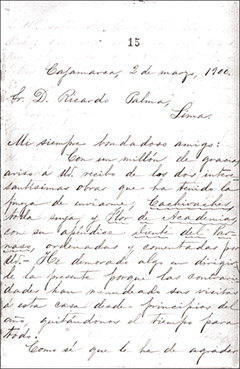 15
Cajamarca, 2 de marzo, 1900.
Sr. D. Ricardo Palma,
Lima.
Mi siempre bondadoso amigo:
Con un millón de gracias
aviso a U. recibo de los dos intere-
santísimas obras que ha tenido la
fineza de enviarme, Cachivaches,
toda suya, y Flor de Academias
con su apéndice Diente del Par-
naso, ordenadas y comentadas por
U.- He demorado algo en dirigir
de la presente porque las contrarie-
dades han menudeado sus visitas
a esta casa desde principios del
año, quitándonos el tiempo para
todo.
Como sé que le ha de agradar